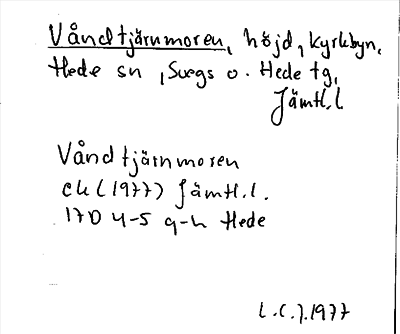 Våndtjärnmoren, höjd, Kyrkbyn,
Hede sn, Svegs o. Hede tg,
Jämtl. l
Våndtjärnmoren
ek (1977) Jämtl. l.
17D 4-5 g-h Hede
L.C.J. 1977